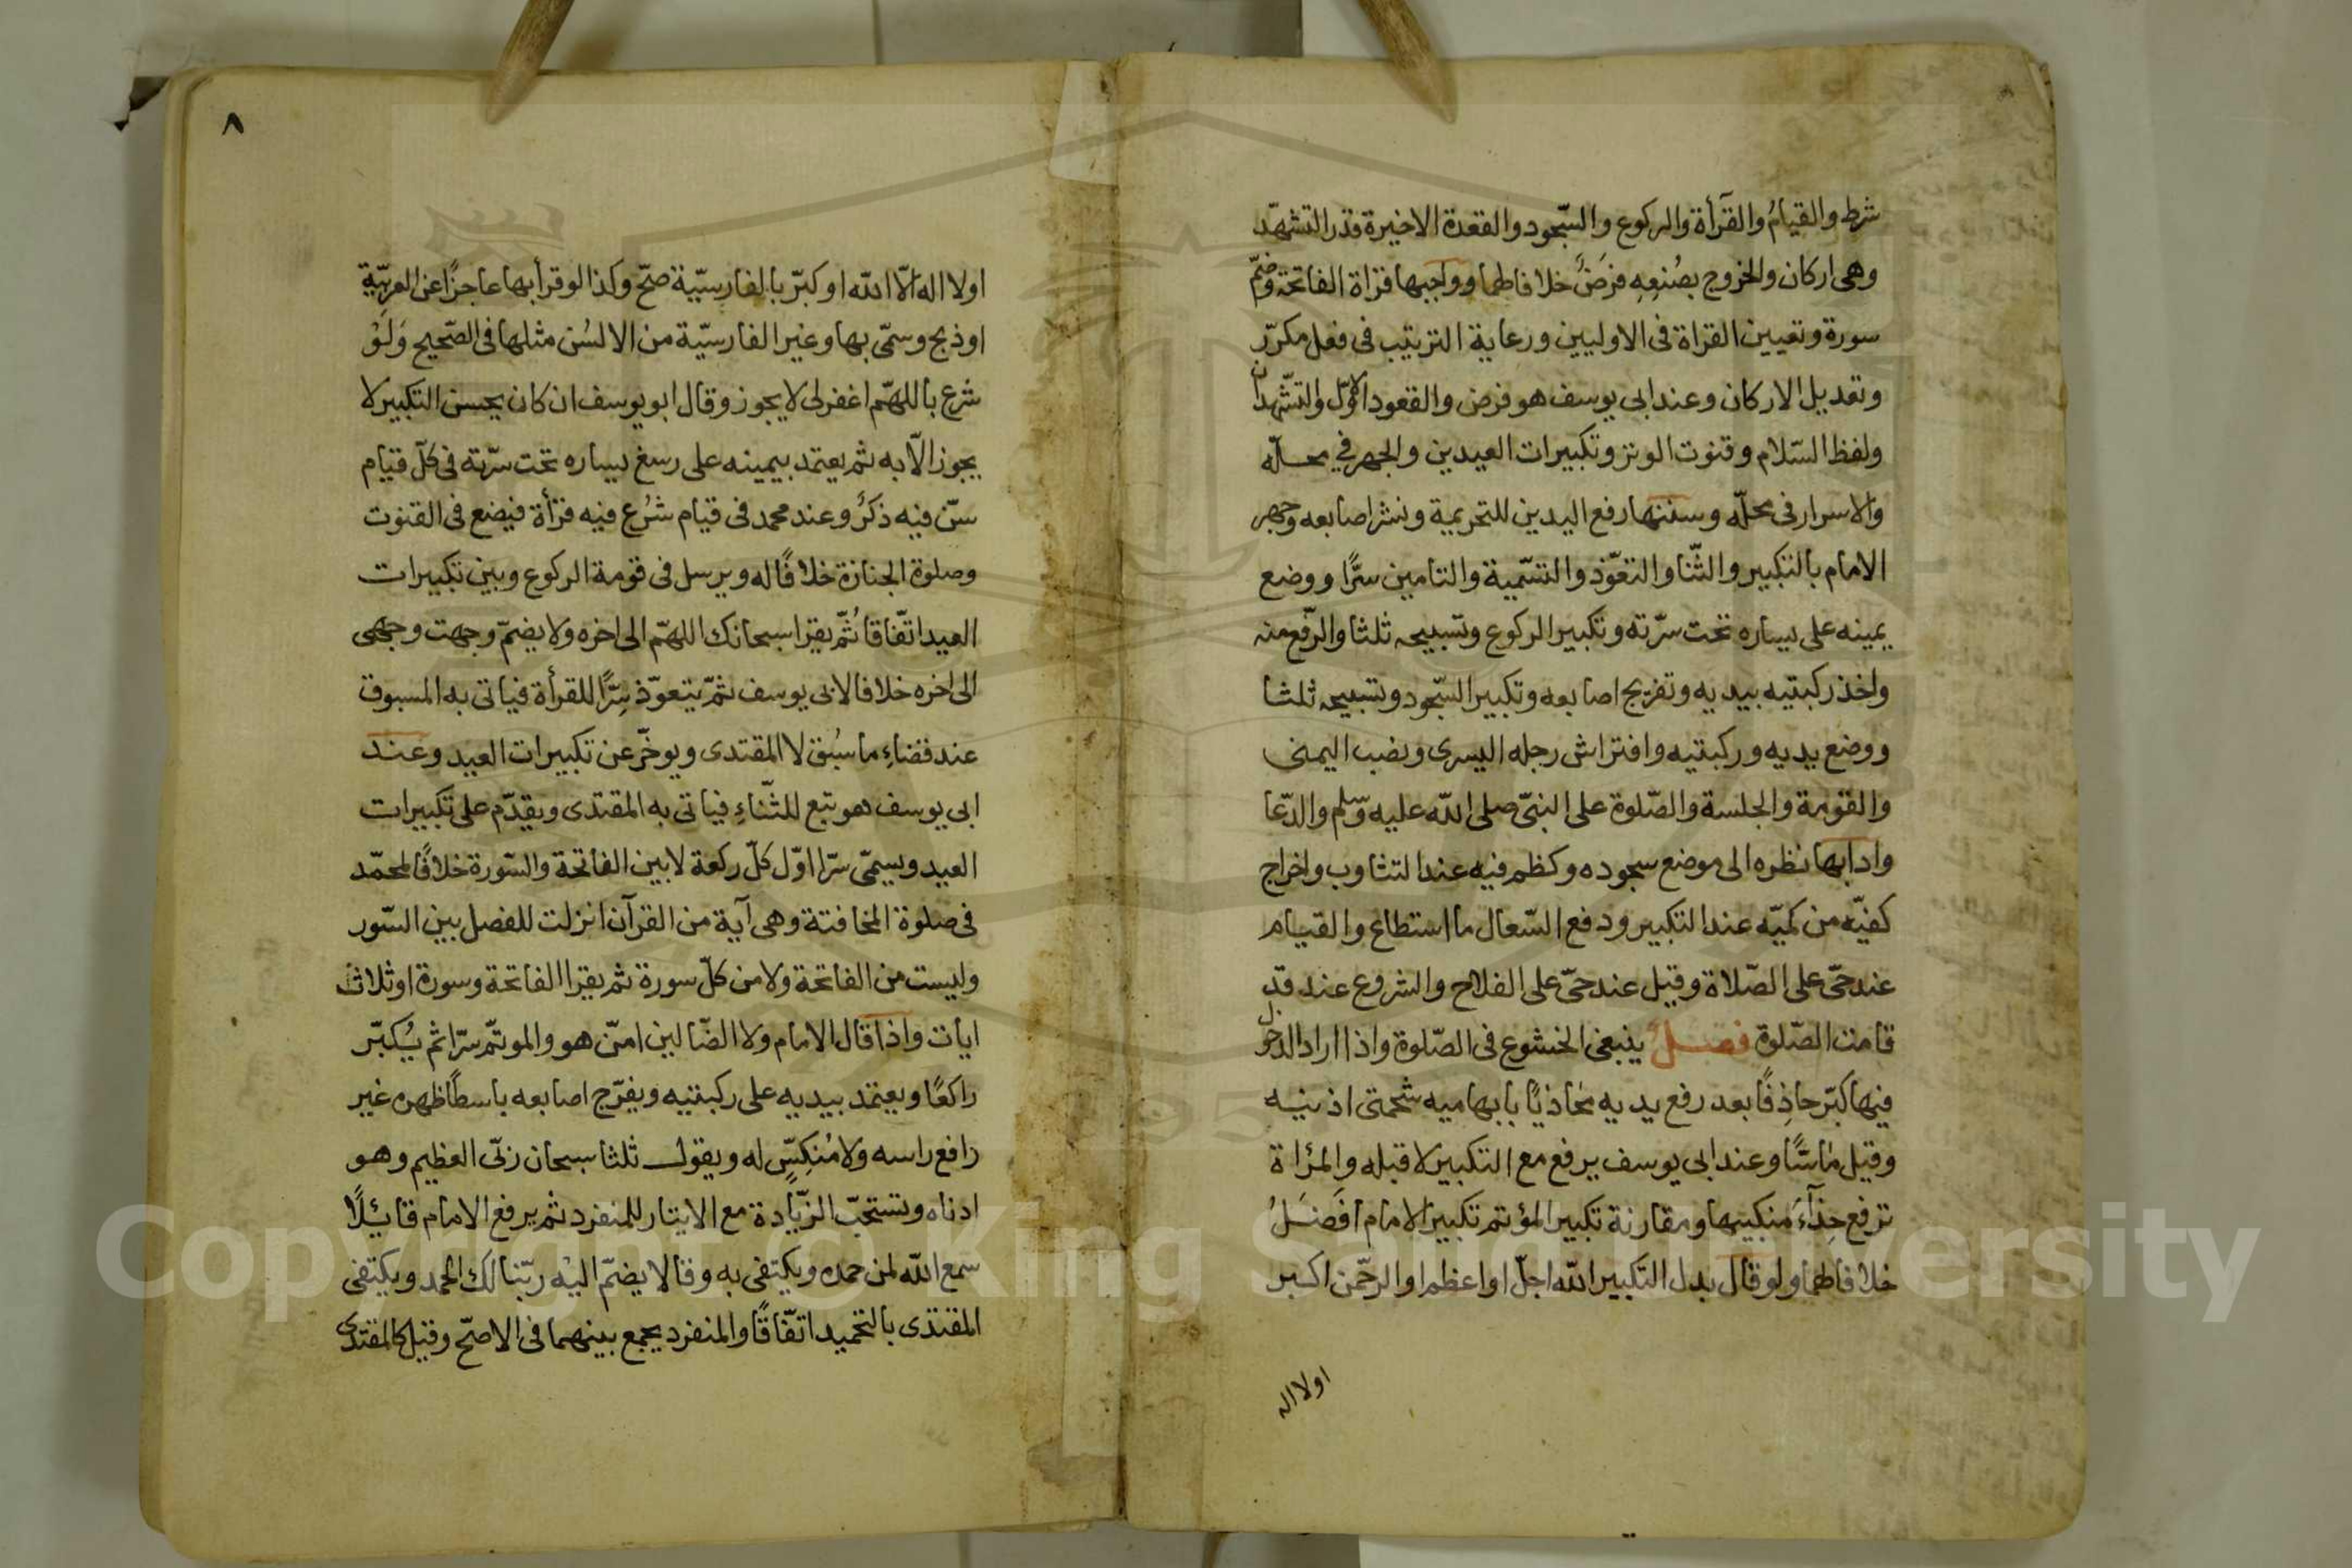 شرط والقيامُ والقرآة والركوع والسّجود والقعدة الاخيرة قدر التشهّد
وهى اركان والخروج بصُنعِهِ فرضٌ خلا فالهما وواجبها قراة الفاتحة وضمّ
سورة وتعيين القراة فى الاوليين ورعاية الترتيب فى فعل مكرّر
وتعديل الاركان وعند ابى يوسف هو فرض والقعود الاوّل والتشّهدان
ولفظ السّلام وقنوت الوتر وتكبيرات العيدين والجهر في محلّه
والاسرار فى محلّه وسننها رفع اليدين للتحريمة ونشر اصابعه وجهر
الامام بالتكبير والثّنا والتعوّذ والتسّمية والتامين سرًّا ووضع
يمينه على يساره تحت سرّته وتكبير الركوع وتسبيحه ثلثا والرّفع منه
واخذ ركبتيه بيديه وتفريج اصابعه وتكبير السّجود وتسبيحه ثلثا
ووضع يديه وركبتيه وافتراش رجله اليسرى ونصب اليمنى
والقومة والجلسة والصّلوة على النبىّ صلى الله عليه وسّلم والدّعا
وادابها نظره الى موضع سجوده وكظم فيه عند التثاوب واخراج
كفيّه من كميّه عند التكبير ودفع السّعال ما استطاع والقيام
عند حىّ على الصّلاة وقيل عند حىّ على الفلاح والشروع عند قد
قامت الصّلوة فصل ينبغى الخشوع فى الصّلوة واذا اراد الدخول
فيها كبّر حاذِفًا بعد رفع يديه محاذيًا بابهاميه شحمتى اذنيه
وقيل ماسًّا وعند ابى يوسف يرفع مع التكبير لا قبله والمرأة
ترفع حِذآءَ منكبيها ومقارنة تكبير المؤتم تكبير الامام افضلُ
خلا فالهما ولو قال بدل التكبير الله اجلّ او اعظم او الرحّمن اكبر
اولا اله
٨
اولا اله الّا الله او كبّر بالفارسيّة صحّ وكذا لو قرأ بها عاجزًا عن العربيّة
او ذبح وسمّى بها وغير الفارسيّة من الالسُن مثلها فى الصّحيح وَلَوْ
شرع باللهّم اغفر لى لا يجوز وقال ابو يوسف ان كان يحسن التكبير لا
يجوز الّا به ثم يعتمد بيمينه على رسغ يساره تحت سرّته فى كلّ قيام
سنّ فيه ذكرٌ وعند محمد فى قيام شرُع فيه قرأة فيضع فى القنوت
وصلوة الجنازة خلا فًا له ويرسل فى قومة الركوع وبين تكبيرات
العيد اتّفاقا ثُمّ يقرا سبحانك اللهّم الى اخره ولا يضمّ وجهت وجهى
الى اخره خلافا لابى يوسف ثمّ يتعوّذ سِرًّا للقرأة فياتى به المسبوق
عند قضاءِ ما سُبق لا المقتدى ويوخّر عن تكبيرات العيد وعند
ابى يوسف هو تبع للثّناءِ فياتى به المقتدى ويقدّم على تكبيرات
العيد ويسمّى سرّا اوّل كلّ ركعة لا بين الفاتحة والسّورة خلافًا لمحمّد
فى صلوة المخافتة وهى آية من القرآن انزلت للفصل بين السّور
وليست من الفاتحة ولا من كلّ سورة ثم يقرا الفاتحة وسورة او ثلاث
ايات واذا قال الامام ولا الضّالين امّن هو والموتّم سرّا ثم يُكبّر
راكعًا ويعتمد بيديه على ركبتيه ويفرّج اصابعه باسطًا ظهره غير
رافع راسه ولا مُنكِسٍّ له ويقول ثلثا سبحان ربّى العظيم وهو
ادناه وتستحبّ الزّيادة مع الايتار للمنفرد ثم يرفع الامام قائِلًا
سمع الله لمن حمده ويكتفى به وقالا يضمّ اليْه ربّنا لك الحمد ويكتفى
المقتدى بالتحميد اتفّاقًا والمنفرد يجمع بينهما فى الاصحّ وقيل كالمقتدى
Copyright © King Saud University